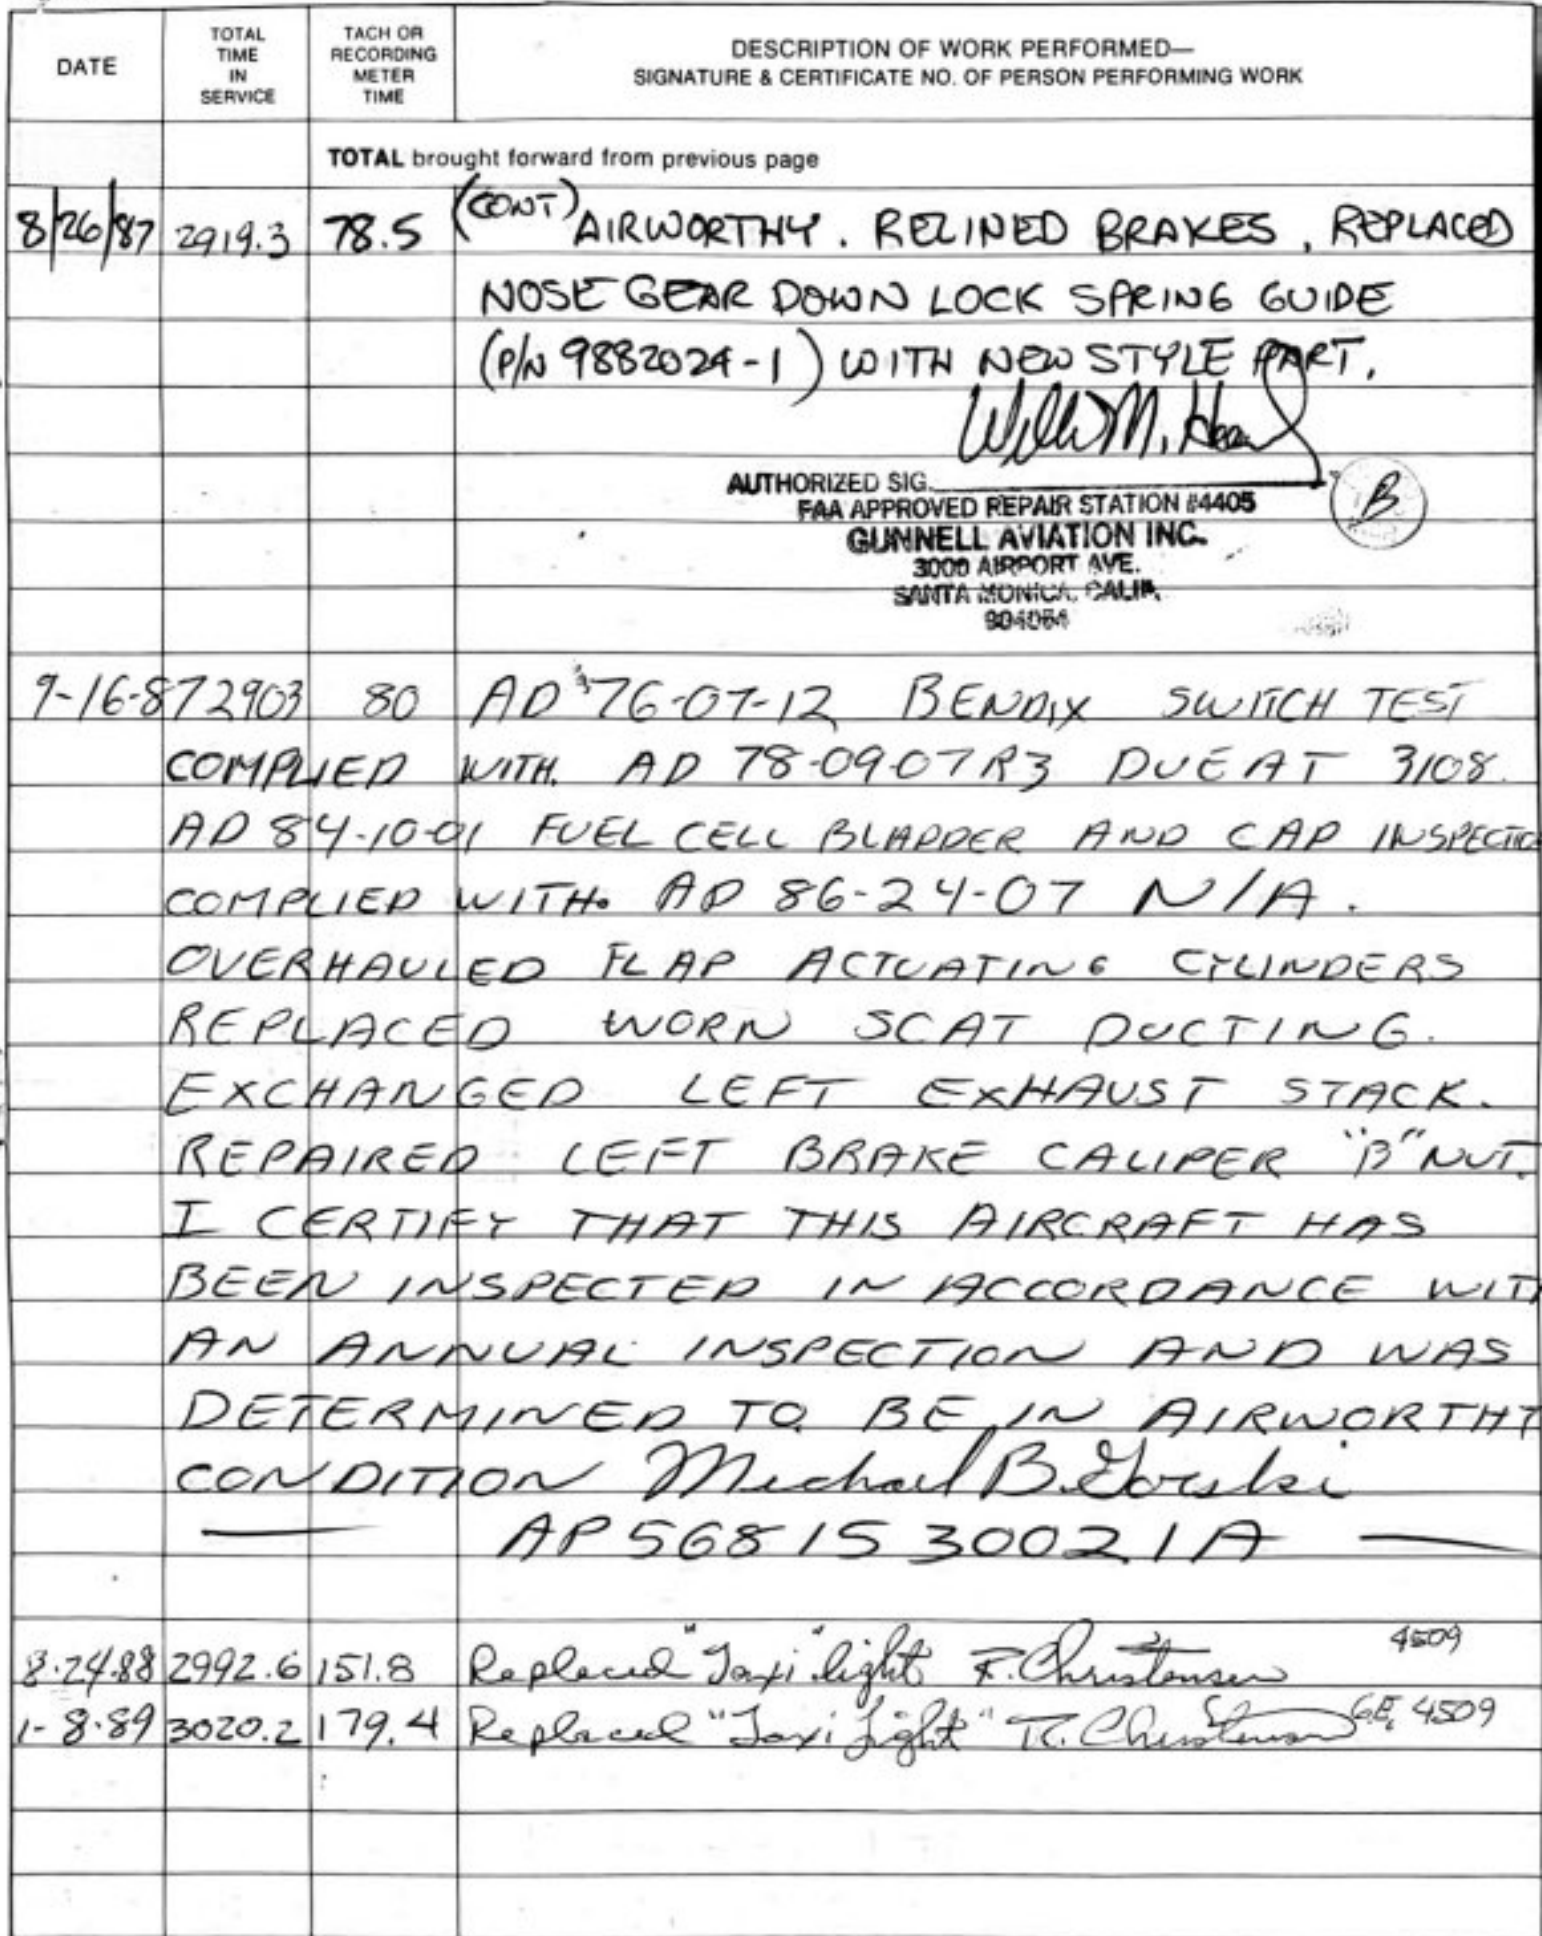 DATE TOTAL TIME IN SERVICE TACH OR RECORDING METER TIME DESCRIPTION OF WORK PERFORMED— SIGNATURE & CERTIFICATE NO. OF PERSON PERFORMING WORK
TOTAL brought forward from previous page
8/26/87 2919.3 78.5 (CONT) AIRWORTHY. RELINED BRAKES, REPLACED
NOSE GEAR DOWN LOCK SPRING GUIDE
(P/N 9882024-1) WITH NEW STYLE PART.
AUTHORIZED SIG.
B
FAA APPROVED REPAIR STATION #4405
GUNNELL AVIATION INC.
3000 AIRPORT AVE.
SANTA MONICA, CALIF.
9-16-87 2903 80 AD 76-07-12 BENDIX SWITCH TEST
COMPLIED WITH. AD 78-09-07R3 DUE AT 3108.
AD 84-10-01 FUEL CELL BLADDER AND CAP INSPECTIO
COMPLIED WITH. AD 86-24-07 N/A.
OVERHAULED FLAP ACTUATING CYLINDERS
REPLACED WORN SCAT DUCTING.
EXCHANGED LEFT EXHAUST STACK.
REPAIRED LEFT BRAKE CALIPER "B" NUT.
I CERTIFY THAT THIS AIRCRAFT HAS
BEEN INSPECTED IN ACCORDANCE WITH
AN ANNUAL INSPECTION AND WAS
DETERMINED TO BE IN AIRWORTHY
CONDITION Michael B. Gorski
— AP 568153002IA —
8-24-88 2992.6 151.8 Replaced "Taxi" light R. Christensen 4509
1-8-89 3020.2 179.4 Replaced "Taxi Light" R. Christensen G.E. 4509